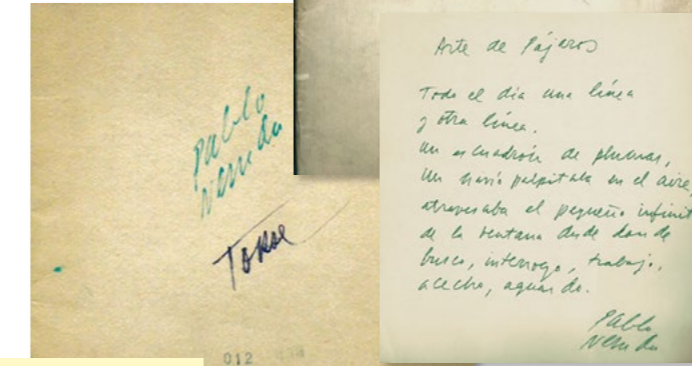 Pablo
Neruda
012
Arte de Pájaros
Todo el día una línea
y otra línea,
un escuadrón de plumas,
un navío palpitaba en el aire,
atravesaba el pequeño infinit
de la ventana desde donde
busco, interrogo, trabajo,
acecho, aguardo.
Pablo
Neruda